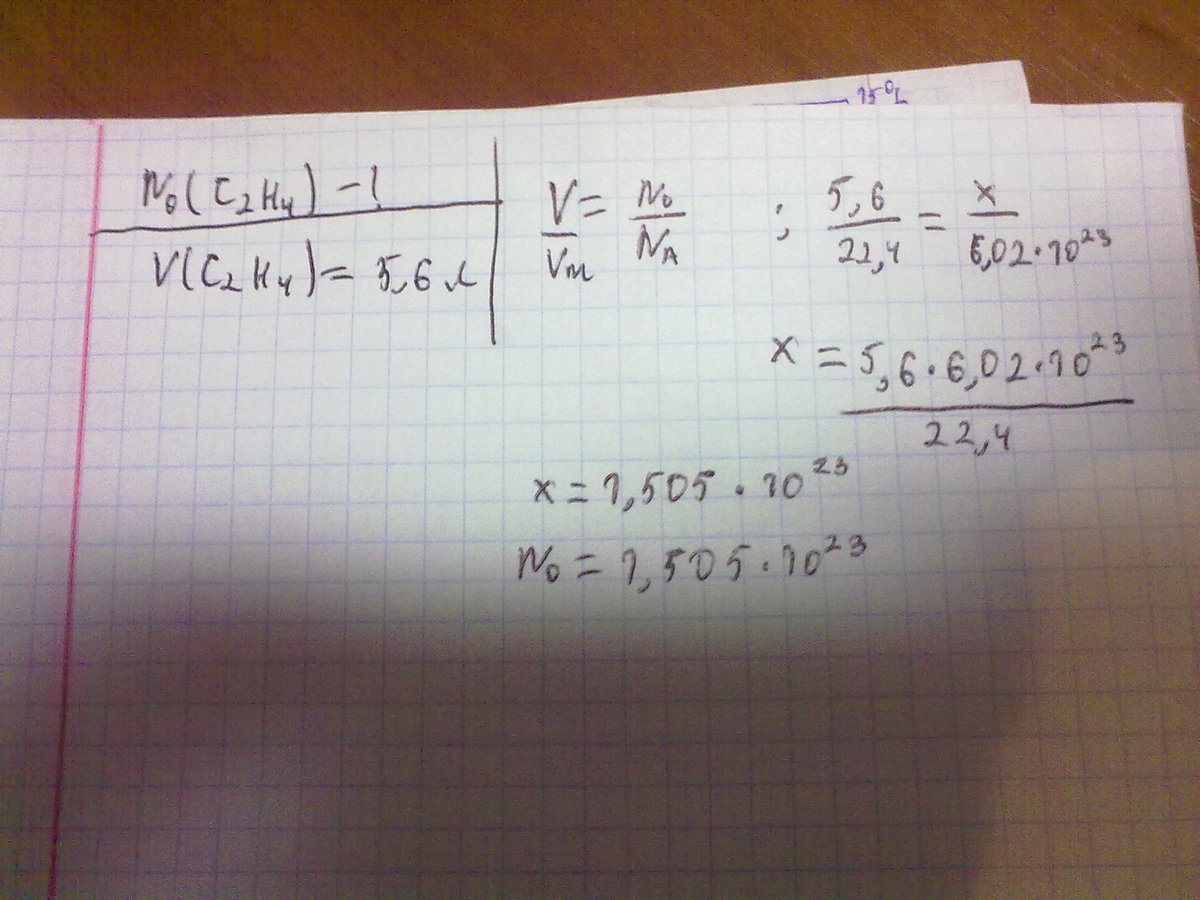 15%
N₀(C₂H₄) – !
V(C₂H₄) = 5,6 л
V/Vm = N₀/NA ; 5,6/22,4 = x/6,02·10²³
x = 5,6·6,02·10²³/22,4
x = 1,505·10²³
N₀ = 1,505·10²³